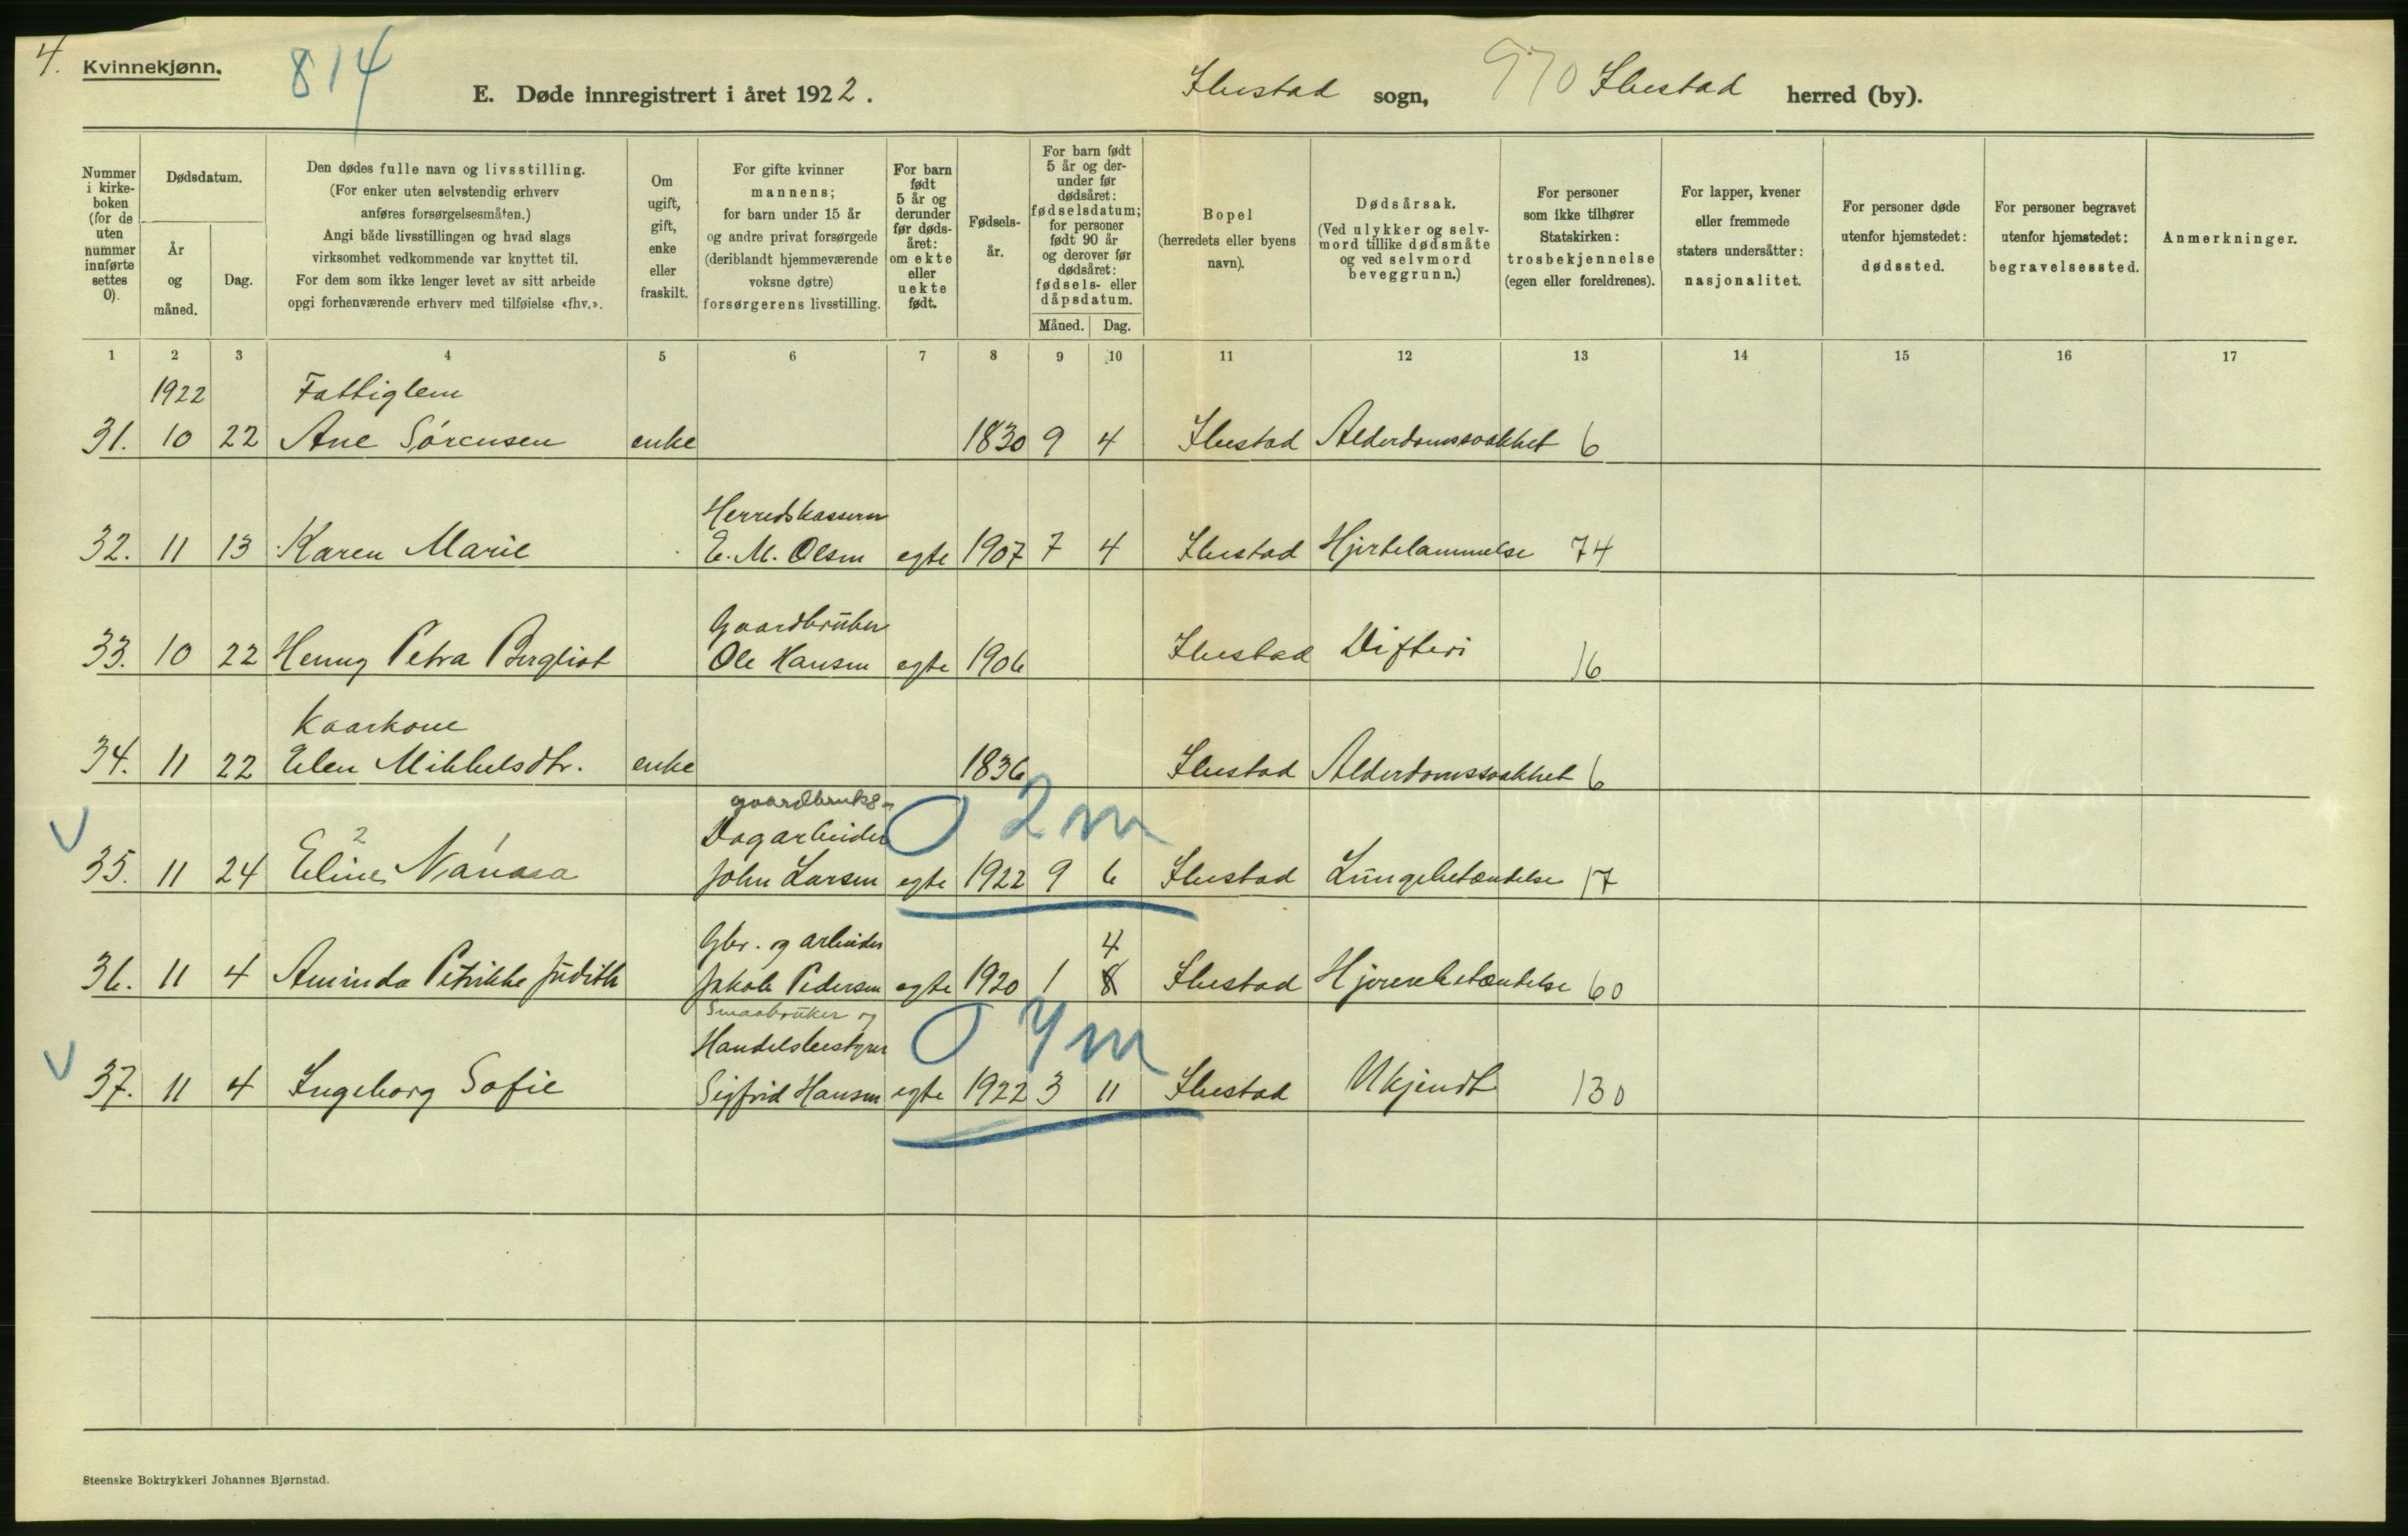 4.
Kvinnekjønn.
814
E. Døde innregistrert i året 1922.
Ibestad sogn, 970 Ibestad herred (by).
Nummer i kirke-boken (for de uten nummer innførte settes 0).
Dødsdatum.
År og måned.
Dag.
Den dødes fulle navn og livsstilling.
(For enker uten selvstendig erhverv
anføres forsørgelsesmåten.)
Angi både livsstillingen og hvad slags
virksomhet vedkommende var knyttet til.
For dem som ikke lenger levet av sitt arbeide
opgi forhenværende erhverv med tilføielse «fhv.».
Om ugift, gift, enke eller fraskilt.
For gifte kvinner
mannens;
for barn under 15 år
og andre privat forsørgede
(deriblandt hjemmeværende
voksne døtre)
forsørgerens livsstilling.
For barn født 5 år og derunder før døds-året: om ekte eller uekte født.
Fødsels-år.
For barn født 5 år og der-under før dødsåret: fødselsdatum; for personer født 90 år og derover før dødsåret: fødsels- eller dåpsdatum.
Måned. Dag.
Bopel
(herredets eller byens
navn).
Dødsårsak.
(Ved ulykker og selv-
mord tillike dødsmåte
og ved selvmord
beveggrunn.)
For personer
som ikke tilhører
Statskirken:
trosbekjennelse
(egen eller foreldrenes).
For lapper, kvener
eller fremmede
staters undersåtter:
nasjonalitet.
For personer døde
utenfor hjemstedet:
dødssted.
For personer begravet
utenfor hjemstedet:
begravelsessted.
Anmerkninger.
1 2 3 4 5 6 7 8 9 10 11 12 13 14 15 16 17
1922 Fattiglem
31. 10 22 Ane Sørensen enke 1830 9 4 Ibestad Alderdomssvakhet 6
Herredskasserer
32. 11 13 Karen Marie E. M. Olsen egte 1907 7 4 Ibestad Hjertelammelse 74
Gaardbruker
33. 10 22 Henny Petra Bergliot Ole Hansen egte 1906 Ibestad Difteri 16
Kaarkone
34. 11 22 Elen Mikkelsdtr. enke 1836 Ibestad Alderdomssvakhet 6
gaardbruks-
2 Dagarbeider 0 2 m
V 35. 11 24 Eline Nanna John Larsen egte 1922 9 6 Ibestad Lungebetændelse 17
Gbr. og arbeider 4
36. 11 4 Aminda Petrikke Judith Jakob Pedersen egte 1920 1 8 Ibestad Hjernebetændelse 60
Smaabruker og
Handelsbestyrer 0 7 m
V 37. 11 4 Ingeborg Sofie Sigfrid Hansen egte 1922 3 11 Ibestad Ukjendt 130
Steenske Boktrykkeri Johannes Bjørnstad.